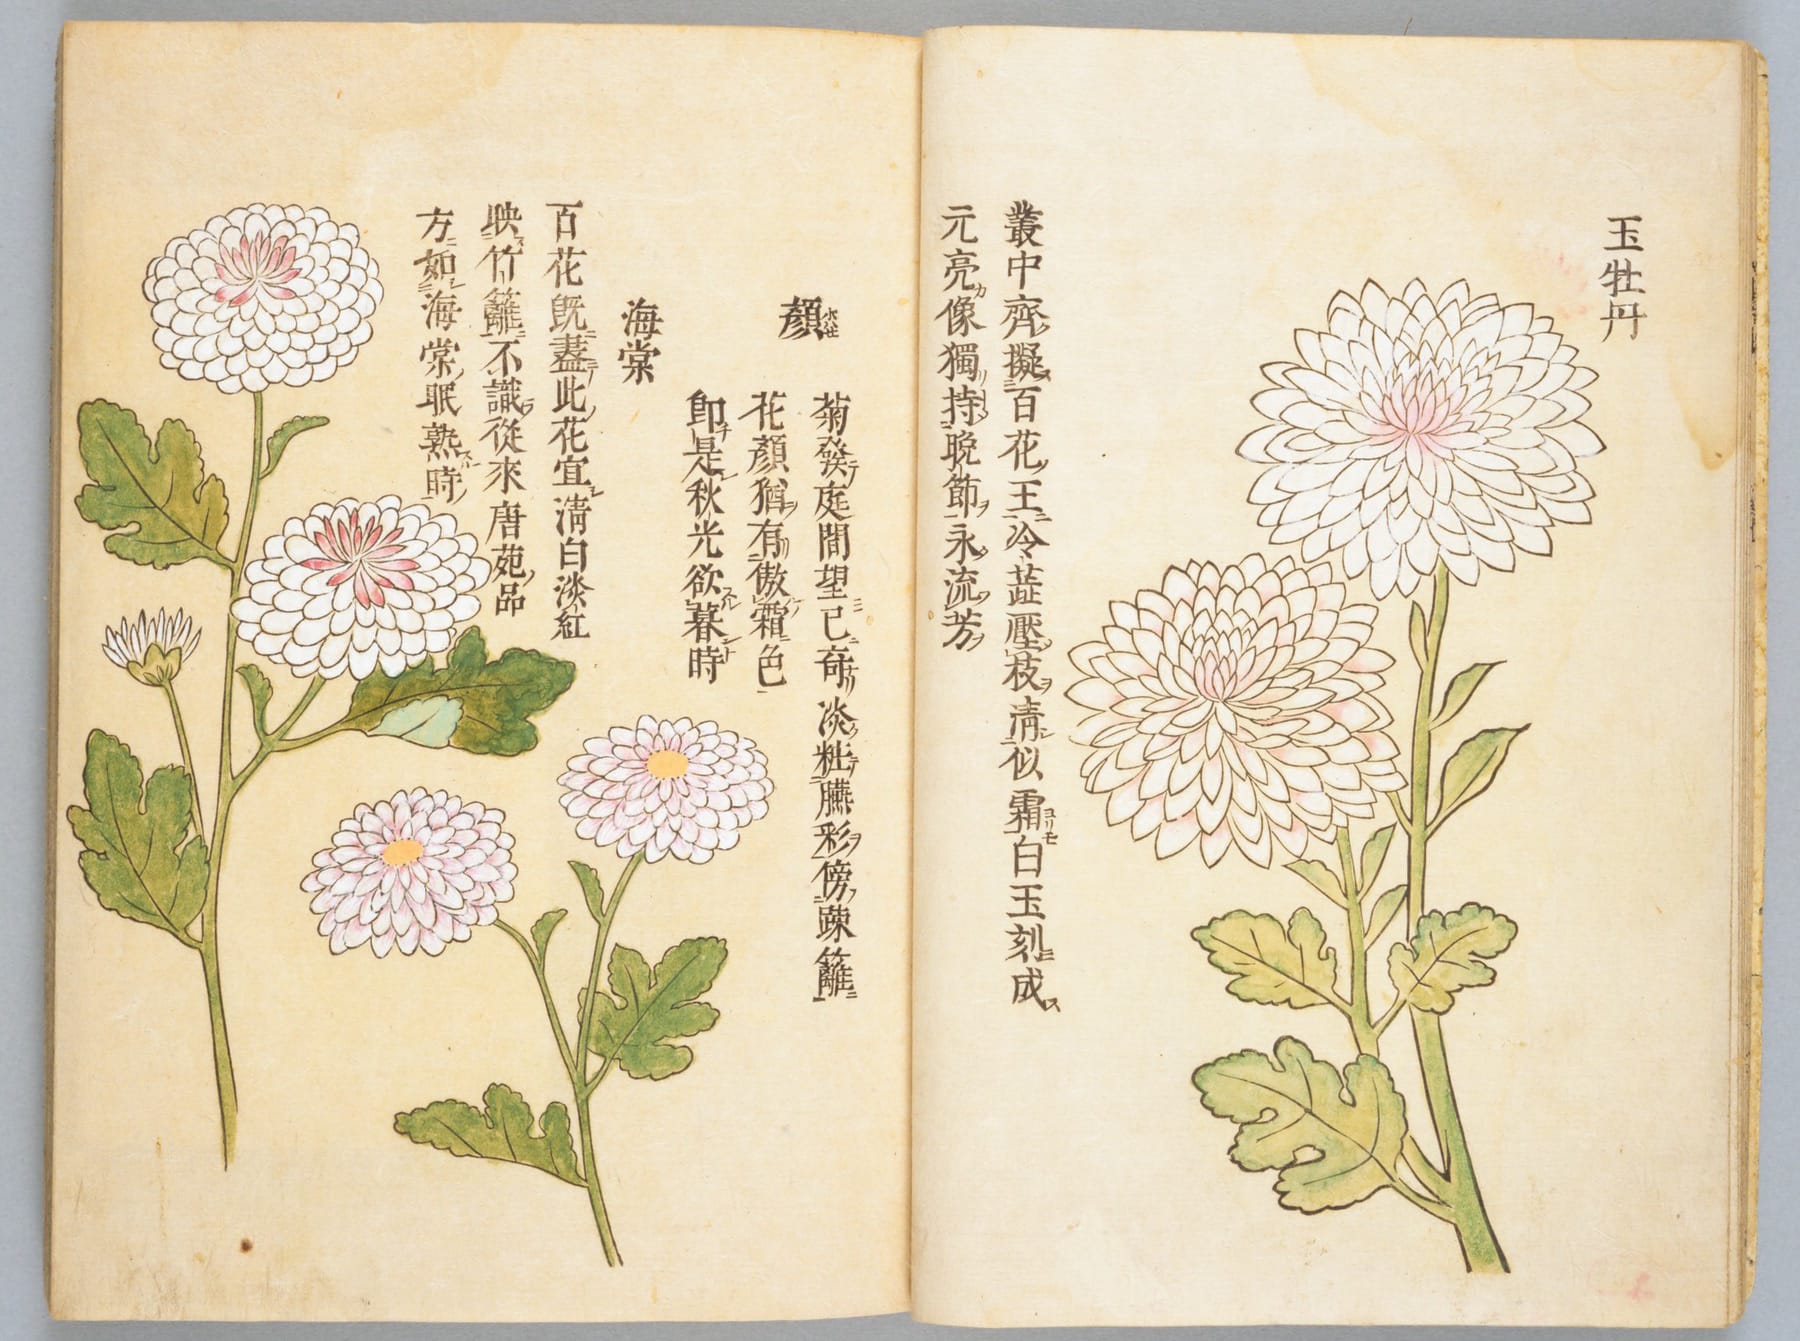 玉牡丹
叢中齊擬百花王冷蕋壓枝清似霜白玉刻成
元亮像獨持晩節永流芳
顏
菊發庭間望已奇淡粧臙彩傍踈籬
花顏猶有傲霜色
即是秋光欲暮時
海棠
百花既盡此花宜清白淡紅
映竹籬不識從來唐苑品
方如海棠眠熟時